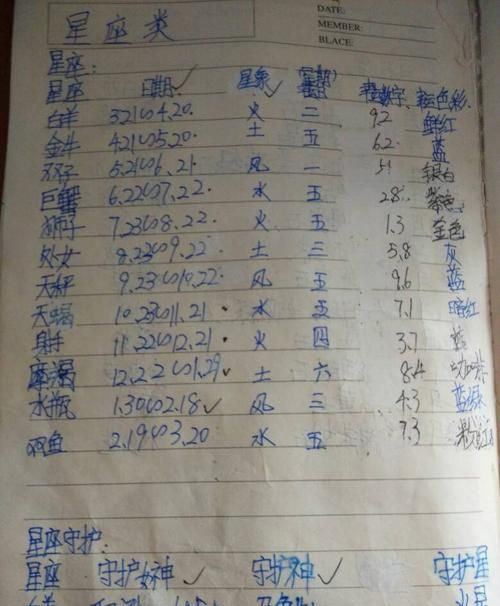 DATE:
MEMBER:
BLACE:
星座类
星座:
星座 日期✓ 星象✓ (星期) 幸运数字 幸运色彩
白羊 3.21~4.20. 火 二 9.2 鲜红
金牛 4.21~5.20. 土 五 6.2 蓝
双子 5.21~6.21 风 一 5.1 银白
巨蟹 6.22~7.22. 水 五 2.8 紫色
狮子 7.23~8.22. 火 五 1.3 金色
处女 8.23~9.22. 土 三 5.8 灰
天秤 9.23~10.22. 风 五 9.6 蓝
天蝎 10.23~11.21. 水 五 7.1 暗红
射手 11.22~12.21. 火 四 3.7 蓝
12.22~1.29. 土 六 8.4 咖啡
水瓶 1.30~2.18✓ 风 三 4.3 蓝绿
双鱼 2.19~3.20 水 五 7.3 粉红
星座守护:
星座 守护女神✓ 守护神✓ 守护星
火星